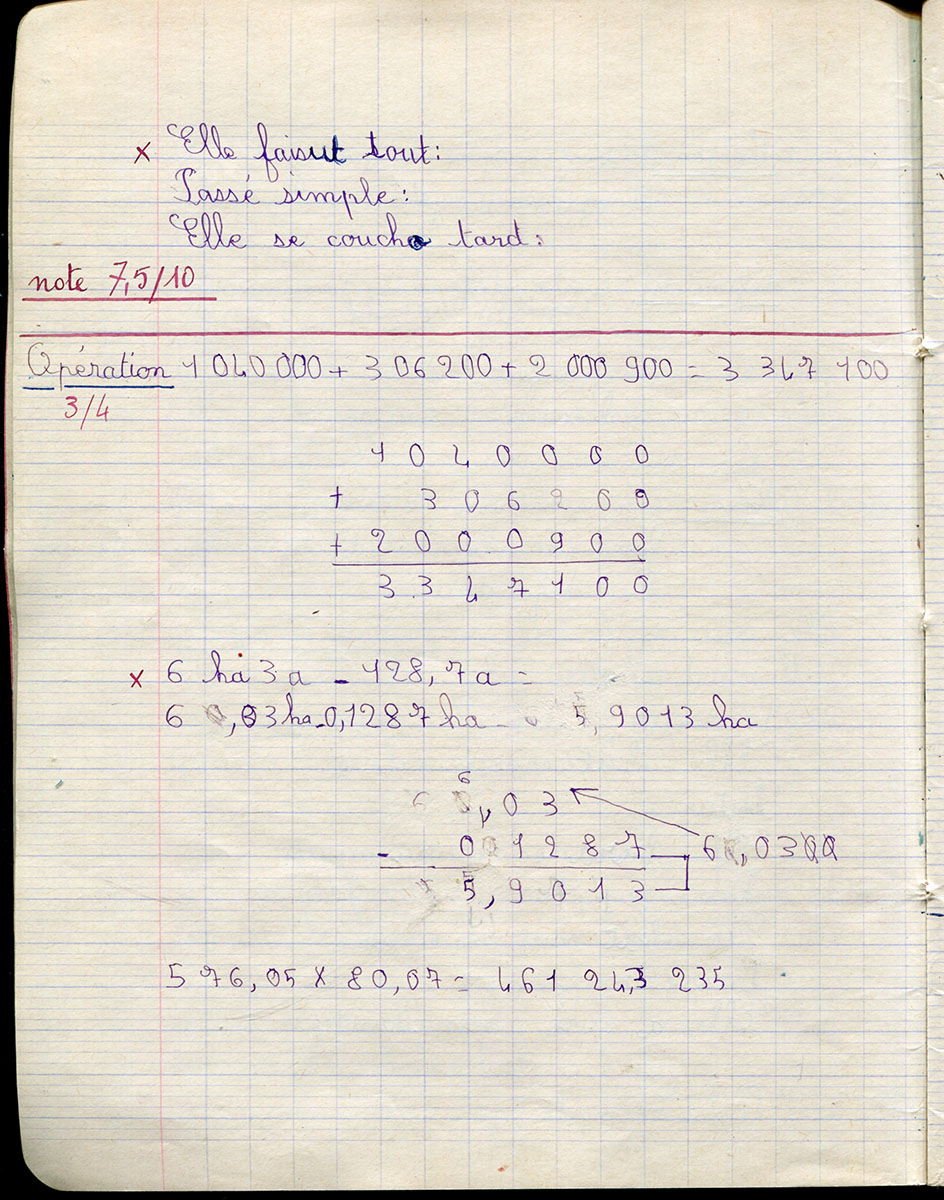 x Elle faisut tout:
Passé simple:
Elle se coucha tard:
note 7,5/10
Opération 1 040 000 + 306 200 + 2 000 900 = 3 347 100
3/4
1 0 4 0 0 0 0
+ 3 0 6 2 0 0
+ 2 0 0 0 9 0 0
3 3 4 7 1 0 0
x 6 ha 3 a - 128,7a =
6 ,03 ha - 0,1287 ha 5,9013 ha
6
6 ,03
- 0 1 2 8 7 6 ,0300
5,9 0 1 3
576,05 x 80,07 = 461 24,3 235